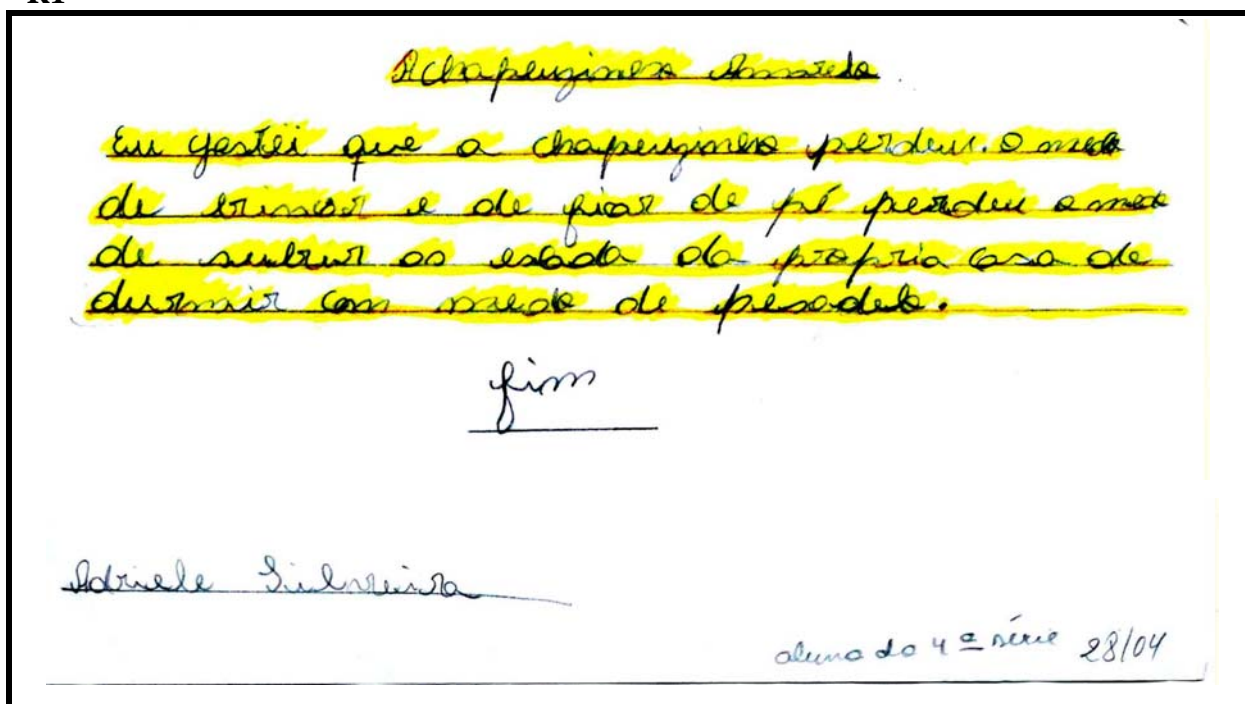 A chapeuzinho Amarelo.
Eu gostei que a chapeuzinho perdeu. O medo
de brincar e de ficar de pé perdeu o medo
de subrur as esada da propria casa de
durmir com medo de pesadelo.
fim
Adriele Silveira
aluna da 4ª série 28/04